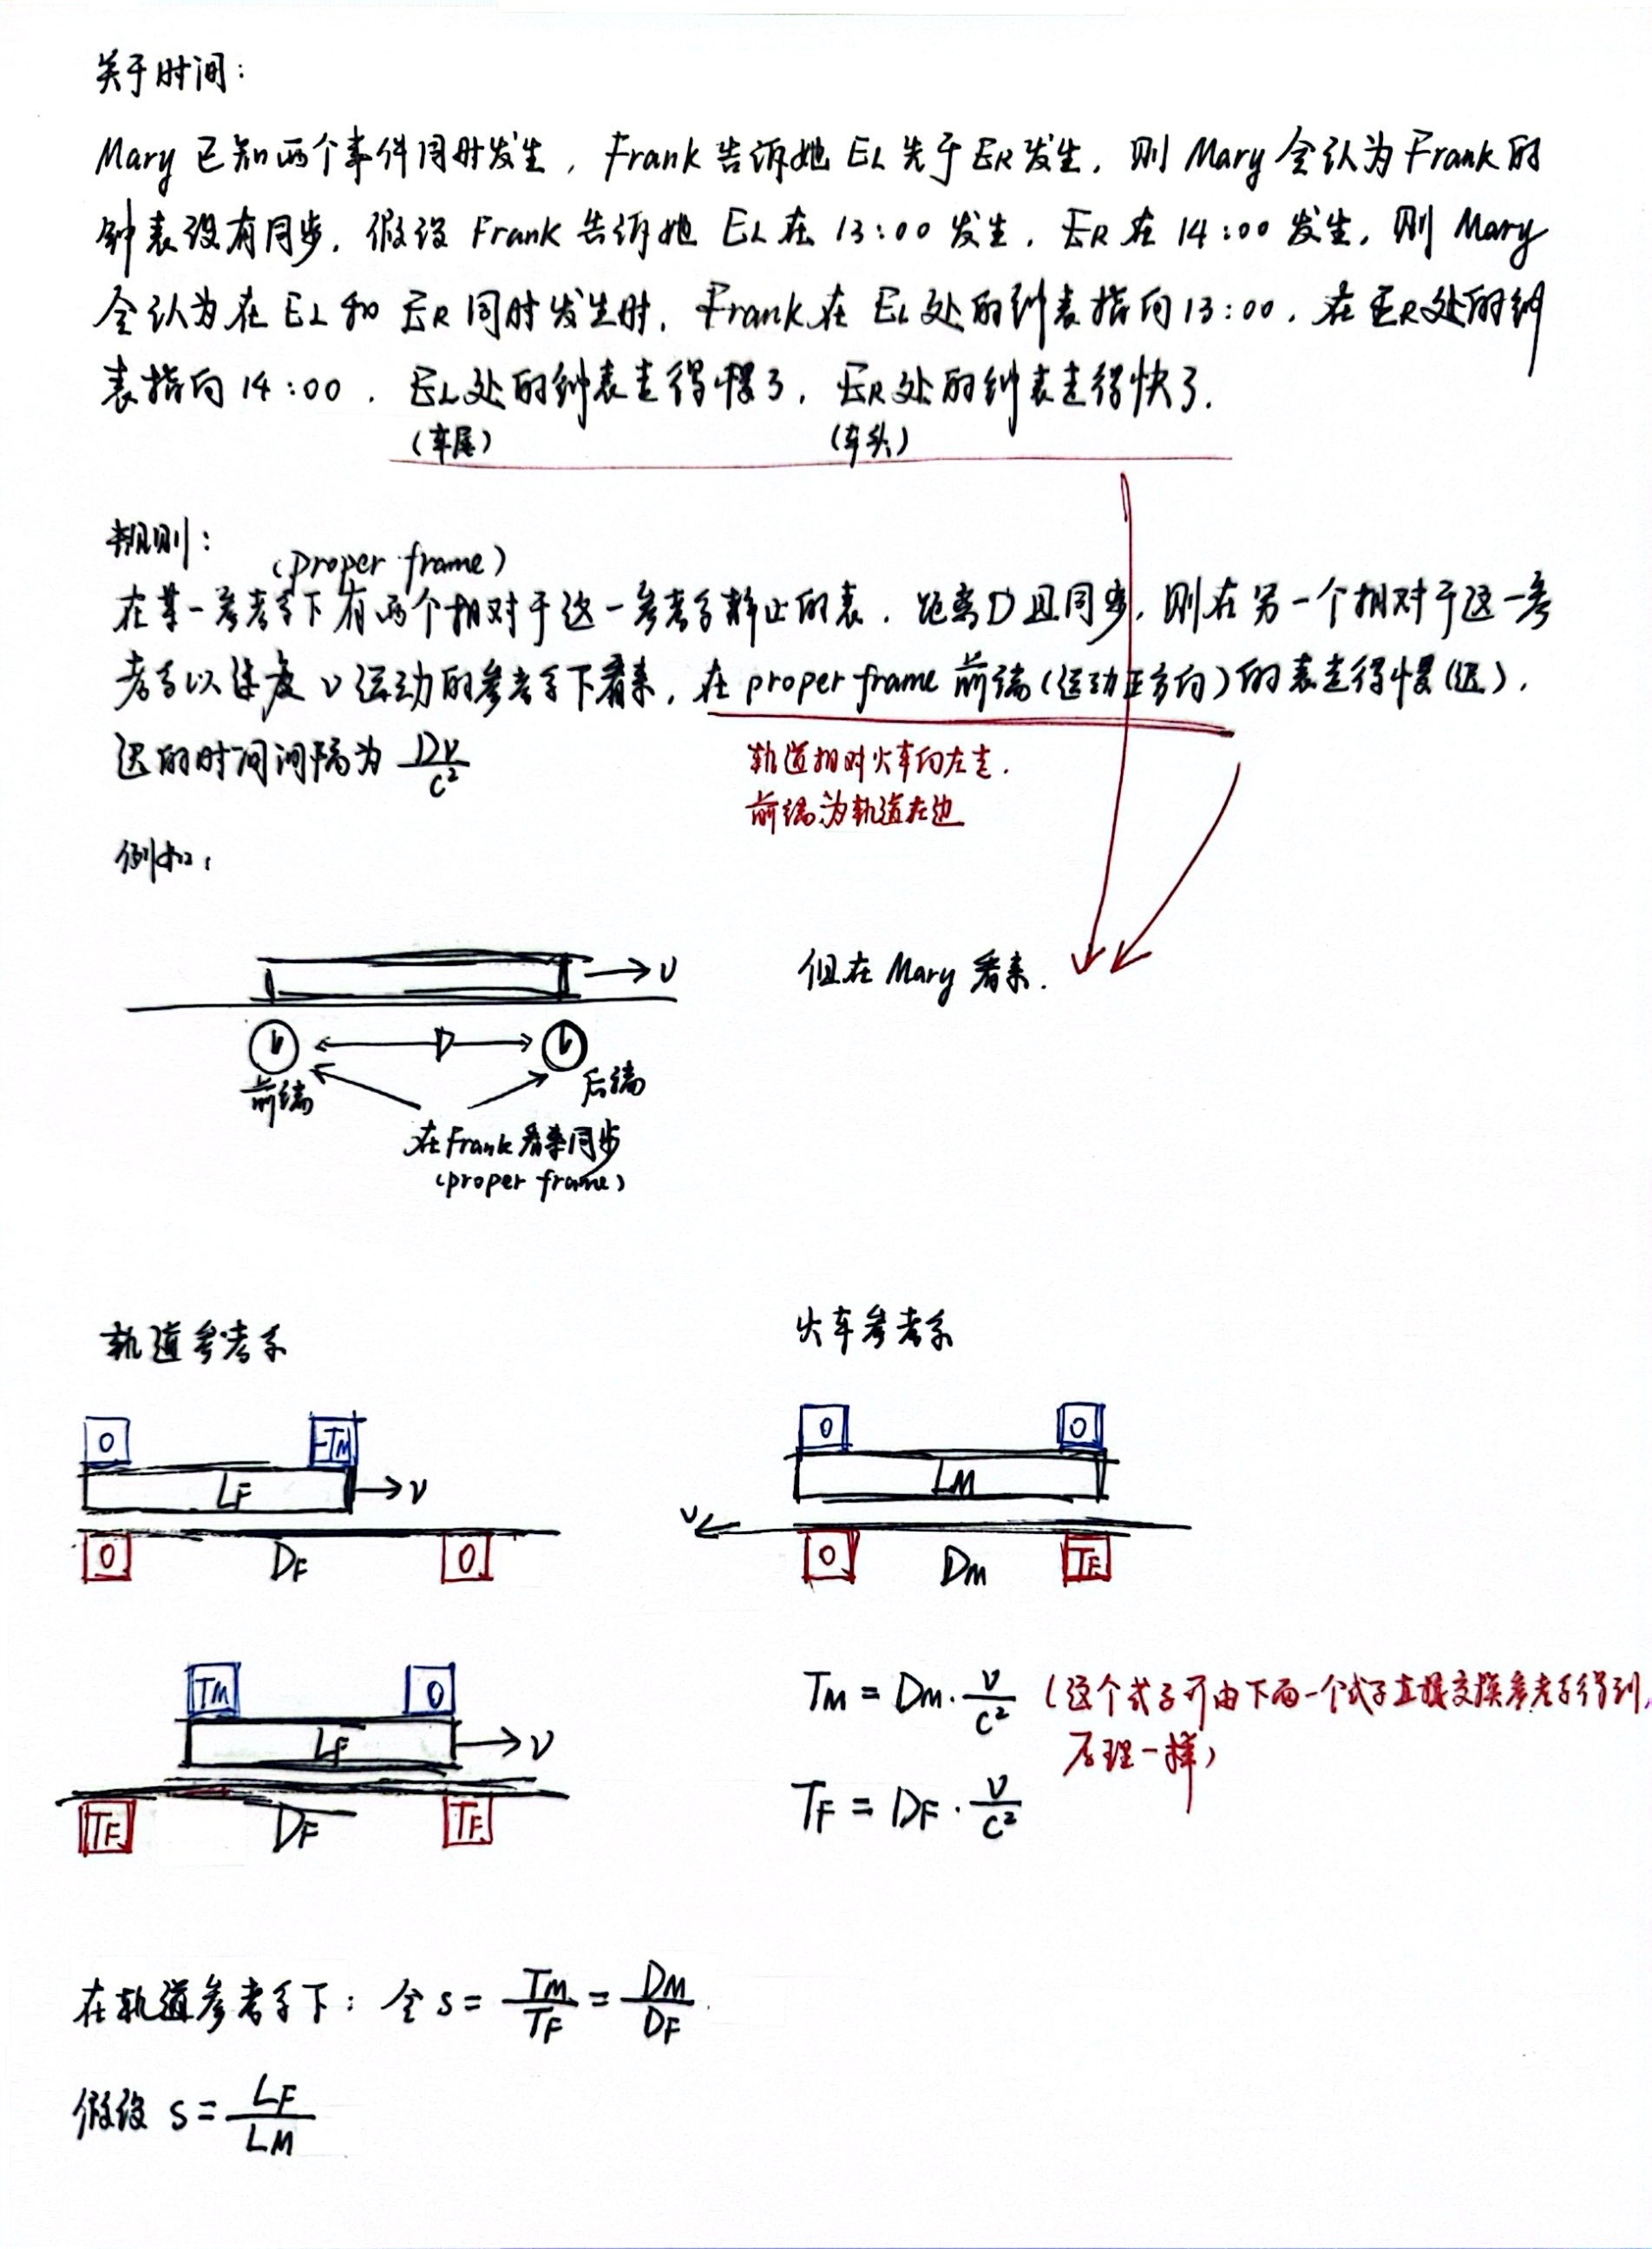 关于时间:
Mary 已知两个事件同时发生, Frank 告诉她 EL 先于 ER 发生, 则 Mary 会认为 Frank 的
钟表没有同步. 假设 Frank 告诉她 EL 在 13:00 发生, ER 在 14:00 发生, 则 Mary
会认为在 EL 和 ER 同时发生时, Frank 在 EL 处的钟表指向 13:00, 在 ER 处的钟
表指向 14:00. EL 处的钟表走得慢了, ER 处的钟表走得快了.
(车尾) (车头)
规则:
(proper frame)
在某一参考系下有两个相对于这一参考系静止的表, 距离 D 且同步, 则在另一个相对于这一参
考系以速度 v 运动的参考系下看来, 在 proper frame 前端(运动正方向)的表走得慢(迟),
迟的时间间隔为 Dv/c²
轨道相对火车向左走,
前端为轨道左边
例如:
v
但在 Mary 看来.
D
前端
后端
在 Frank 看来同步
(proper frame)
轨道参考系
火车参考系
0
-TM
LF
v
0
DF
0
0
0
LM
v
0
DM
TF
TM
0
LF
v
TF
DF
TF
TM = DM · v/c² (这个式子可由下面一个式子直接交换参考系得到,
原理一样)
TF = DF · v/c²
在轨道参考系下: 令 s = TM/TF = DM/DF.
假设 s = LF/LM